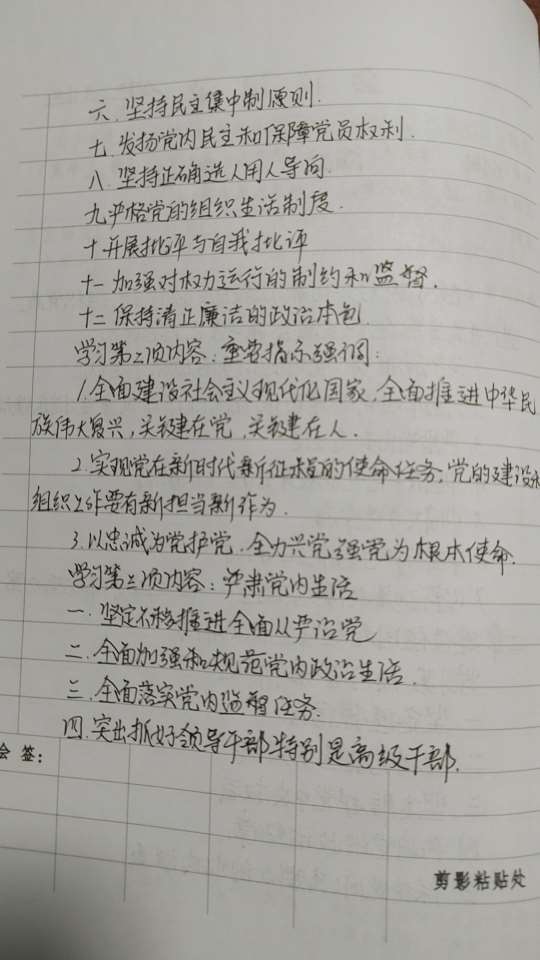 六、坚持民主集中制原则.
七、发扬党内民主和保障党员权利.
八、坚持正确选人用人导向.
九严格党的组织生活制度.
十开展批评与自我批评
十一加强对权力运行的制约和监督.
十二保持清正廉洁的政治本色.
学习第二项内容:重要指示强调:
1.全面建设社会主义现代化国家,全面推进中华民
族伟大复兴,关键在党,关键在人.
2.实现党在新时代新征程的使命任务,党的建设和
组织工作要有新担当新作为.
3.以忠诚为党护党,全力兴党强党为根本使命.
学习第三项内容:严肃党内生活
一.坚定不移推进全面从严治党
二.全面加强和规范党内政治生活.
三.全面落实党内监督任务.
四.突出抓好领导干部特别是高级干部.
会签:
剪影粘贴处